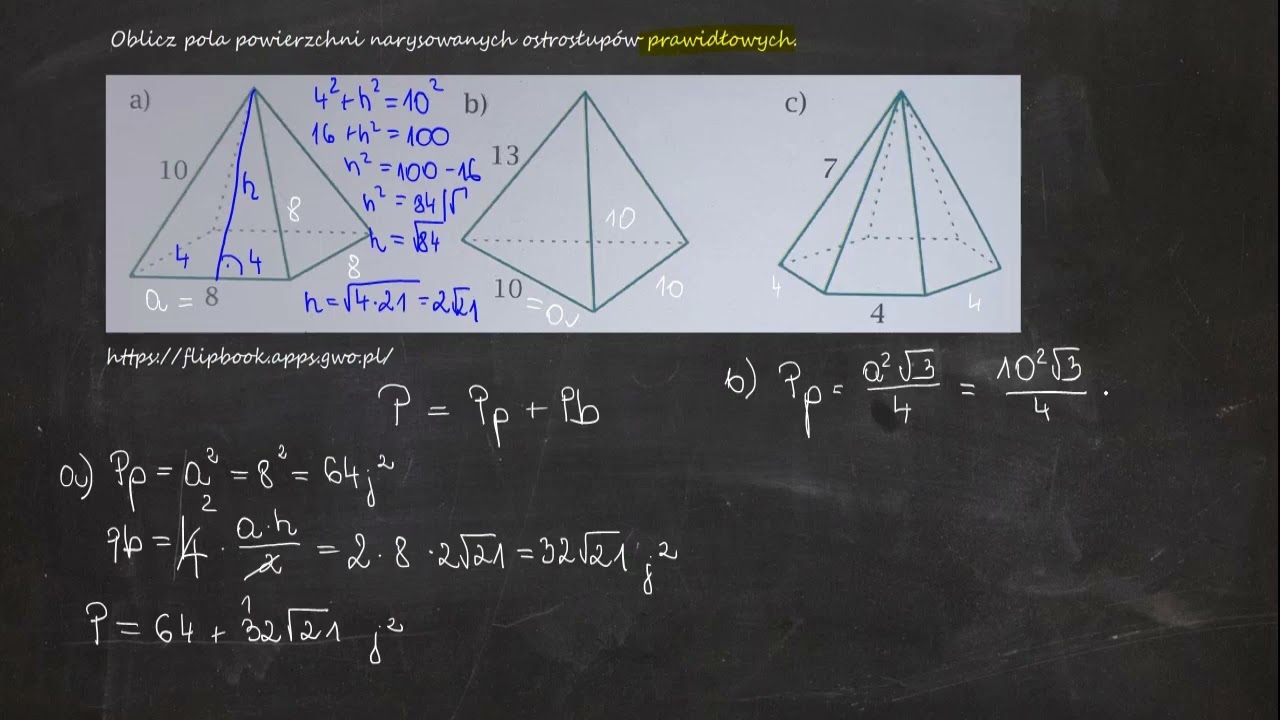 Oblicz pola powierzchni narysowanych ostrosłupów prawidłowych.
a)
10
h
8
4
4
8
a = 8
4² + h² = 10²
16 + h² = 100
h² = 100 - 16
h² = 84 |√
h = √84
h = √4·21 = 2√21
b)
13
10
10 = a
10
c)
7
4
4
4
https://flipbook.apps.gwo.pl/
P = Pp + Pb
a) Pp = a² = 8² = 64 j²
Pb = 4 2 · a·h / 2 = 2 · 8 · 2√21 = 32√21 j²
P = 64 + 32√21 j²
1
b) Pp = a²√3 / 4 = 10²√3 / 4 .